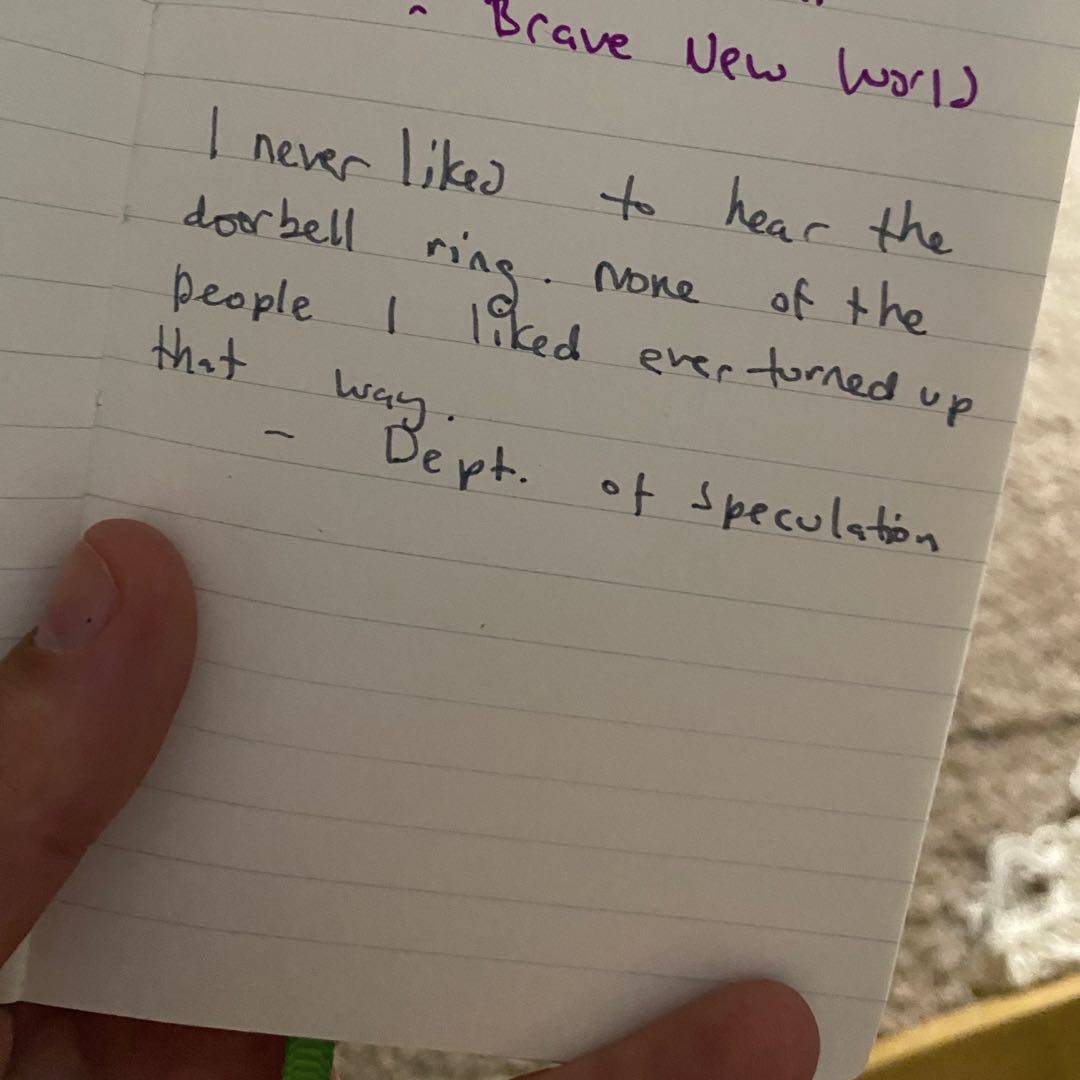 - Brave New World
I never liked to hear the
doorbell ring. None of the
people I liked ever turned up
that way.
- Dept. of speculation